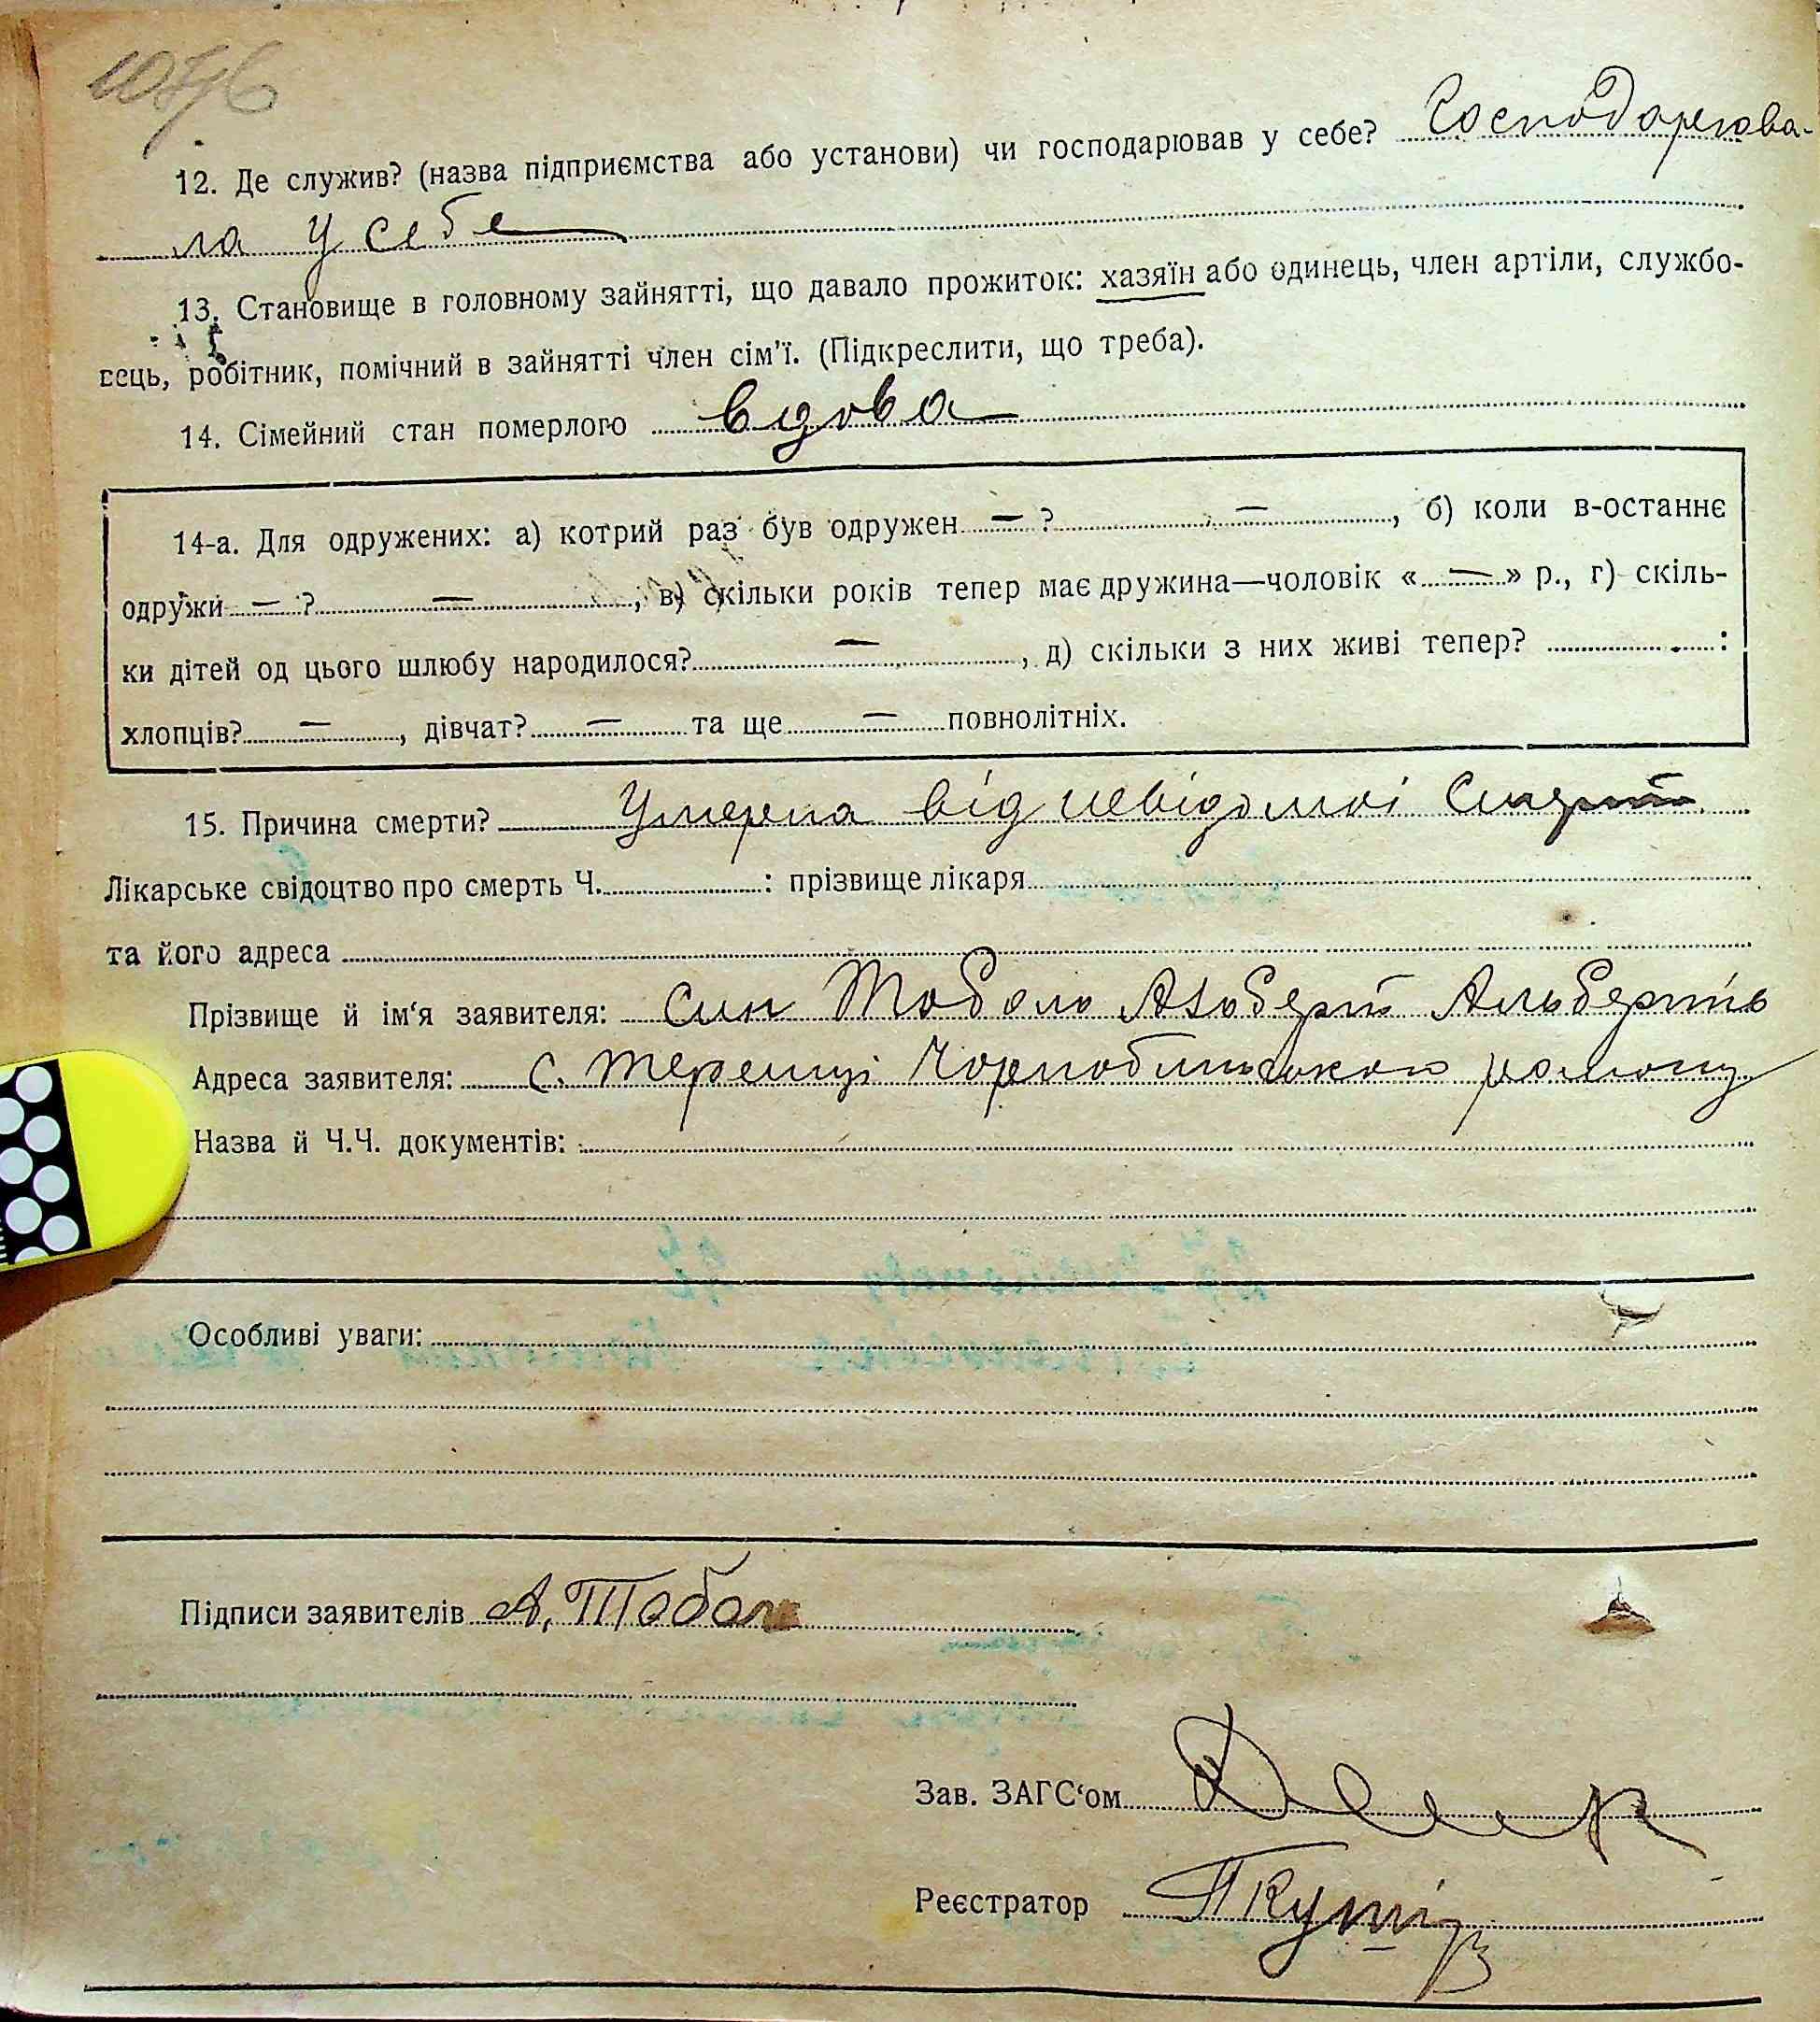 1076
12. Де служив? (назва підприємства або установи) чи господарював у себе? Господарюва-
ла у себе
13. Становище в головному зайнятті, що давало прожиток: хазяїн або одинець, член артіли, службо-
вець, робітник, помічний в зайнятті член сім'ї. (Підкреслити, що треба).
14. Сімейний стан померлого вдова
14-а. Для одружених: а) котрий раз був одружен — ? —, б) коли в-останнє
одружи — ? —, в) скільки років тепер має дружина—чоловік «—» р., г) скіль-
ки дітей од цього шлюбу народилося? —, д) скільки з них живі тепер? :
хлопців? —, дівчат? — та ще — повнолітніх.
15. Причина смерти? Умерла від невідомої смерті
Лікарське свідоцтво про смерть Ч. : прізвище лікаря
та його адреса
Прізвище й ім'я заявителя: син Альберт
Адреса заявителя: с. Теремці Чорнобильского району
Назва й Ч.Ч. документів:
Особливі уваги:
Підписи заявителів А.
Зав. ЗАГС'ом
Реєстратор